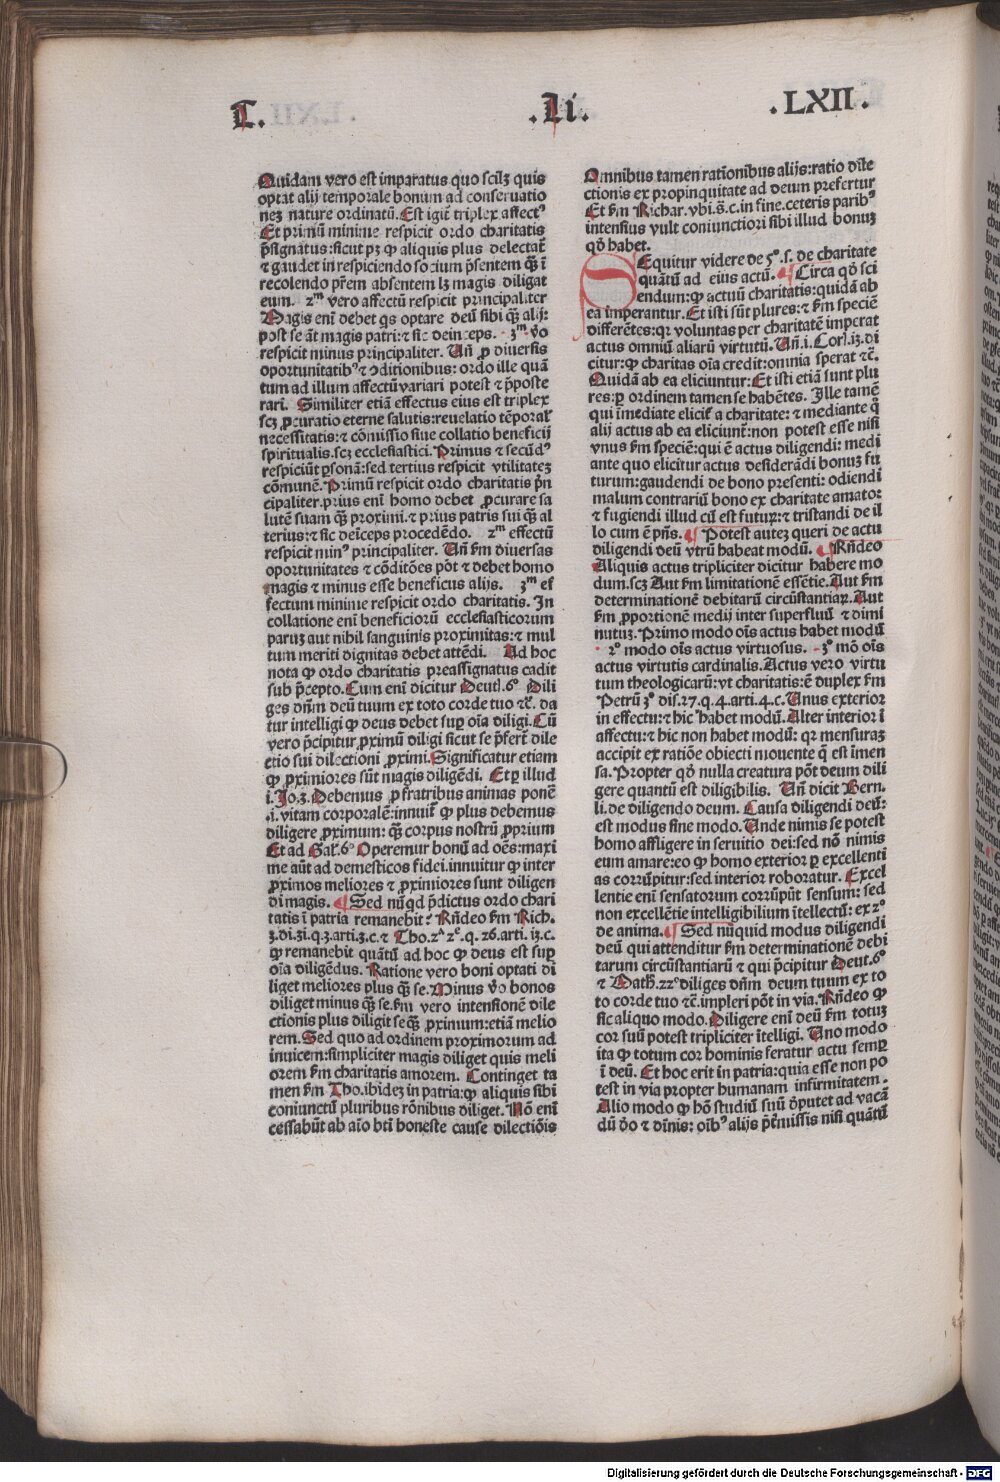 T. .Li. .LXII.
Quidam vero est imparatus quo scilꝫ quis
optat alij temporale bonum ad conseruatio
neꝫ nature ordinatū. Est igit̄ triplex affectꝰ
Et primū minime respicit ordo charitatis
p̄signatus: sicut pꝫ ꝙ aliquis plus delectat̄
⁊ gaudet in respiciendo socium p̄sentem qꝫ̄ ī
recolendo pr̄em absentem lꝫ magis diligat
eum. 2ᵐ vero affectū respicit principaliter
Magis enī debet qs optare deū sibi qꝫ̄ alij:
post se āt magis patri: ⁊ sic deinceps. 3ᵐ v̄o
respicit minus principaliter. Vn̄ ꝓ diuersis
oportunitatibꝰ ⁊ ꝯditionibus: ordo ille quā
tum ad illum affectū variari potest ⁊ p̄poste
rari. Similiter etiā effectus eius est triplex
scꝫ ꝓcuratio eterne salutis: reuelatio tēporal̄
necessitatis: ⁊ cōmissio siue collatio beneficij
spiritualis. scꝫ ecclesiastici. Primus ⁊ secūdꝰ
respiciūt ꝑsonā: sed tertius respicit vtilitateꝫ
cōmunē. Primū respicit ordo charitatis p̄n
cipaliter. prius enī homo debet ꝓcurare sa
lutē suam qꝫ̄ proximi. ⁊ prius patris sui qꝫ̄ al
terius: ⁊ sic deīceps procedēdo. 2ᵐ effectū
respicit minꝰ principaliter. Vn̄ ẜm diuersas
oportunitates ⁊ cōditōes pōt ⁊ debet homo
magis ⁊ minus esse beneficus alijs. 3ᵐ ef
fectum minime respicit ordo charitatis. In
collatione enī beneficiorū ecclesiasticorum
parum aut nihil sanguinis proximitas: ⁊ mul
tum meriti dignitas debet attēdi. Ad hoc
nota ꝙ ordo charitatis preassignatus cadit
sub p̄cepto. Cum enī dicitur Deut̄. 6ᵒ Dili
ges dn̄m deū tuum ex toto corde tuo ⁊c̄. da
tur intelligi ꝙ deus debet suꝑ oīa diligi. Cū
vero p̄cipitur ꝓximū diligi sicut se p̄fert̄ dile
ctio sui dilectioni ꝓximi. Significatur etiam
ꝙ ꝓximiores sūt magis diligēdi. Et ꝑ illud
i. Jo. 3. Debemus ꝓ fratribus animas ponē
.i. vitam corporalē: innuit̄ ꝙ plus debemus
diligere ꝓximum: qꝫ̄ corpus nostrū ꝓprium
Et ad Gal̄. 6ᵒ Operemur bonū ad oēs: maxi
me aūt ad domesticos fidei. innuitur ꝙ inter
ꝓximos meliores ⁊ ꝓximiores sunt diligen
di magis. ¶ Sed nūqd p̄dictus ordo chari
tatis ī patria remanebit? Rn̄deo ẜm Rich.
3. di. 31. q. 3. arti. 3. c. ⁊ Tho. 2ᵃ 2ᵉ. q. 26. arti. 13. c.
ꝙ remanebit quātū ad hoc ꝙ deus est suꝑ
oīa diligēdus. Ratione vero boni optati di
liget meliores plus qꝫ̄ se. Minus v̄o bonos
diliget minus qꝫ̄ se. ẜm vero intensionē dile
ctionis plus diligit se qꝫ̄ ꝓximum: etiā melio
rem. Sed quo ad ordinem proximorum ad
inuicem: simpliciter magis diliget quis meli
orem ẜm charitatis amorem. Continget ta
men ẜm Tho. ibideꝫ in patria: ꝙ aliquis sibi
coniunctū pluribus rōnibus diliget. Nō enī
cessabūt ab aīo bt̄i honeste cause dilectiōis
Omnibus tamen rationibus alijs: ratio dile
ctionis ex propinquitate ad deum prefertur
Et ẜm Richar. vbi. s̄. c. in fine. ceteris paribꝰ
intensius vult coniunctiori sibi illud bonuꝫ
qd̄ habet.
SEquitur videre de 5ᵒ. s. de charitate
quātū ad eius actū. ¶ Circa qd̄ sci
endum: ꝙ actuū charitatis: quidā ab
ea imperantur. Et isti sūt plures: ⁊ ẜm speciē
differētes: qꝛ voluntas per charitatē imperat
actus omniū aliarū virtutū. Vn̄. i. Cor. 13. di
citur: ꝙ charitas oīa credit: omnia sperat ⁊c̄.
Quidā ab ea eliciuntur: Et isti etiā sunt plu
res: ꝑ ordinem tamen se habētes. Ille tamē
qui īmediate elicit̄ a charitate: ⁊ mediante q̊
alij actus ab ea eliciunt̄: non potest esse nisi
vnus ẜm speciē: qui ē actus diligendi: medi
ante quo elicitur actus desiderādi bonuꝫ fu
turum: gaudendi de bono presenti: odiendi
malum contrariū bono ex charitate amato:
⁊ fugiendi illud cū est futuꝝ: ⁊ tristandi de il
lo cum ē p̄ns. ¶ Potest auteꝫ queri de actu
diligendi deū vtrū habeat modū. ¶ Rn̄deo
Aliquis actus tripliciter dicitur habere mo
dum. scꝫ Aut ẜm limitationē essētie. Aut ẜm
determinationē debitarū circūstantiaꝝ. Aut
ẜm ꝓportionē medij inter superfluū ⁊ dimi
nutuꝫ. Primo modo oīs actus habet modū
2ᵒ modo oīs actus virtuosus. 3ᵒ mō oīs
actus virtutis cardinalis. Actus vero virtu
tum theologicarū: vt charitatis: ē duplex ẜm
Petrū 3ᵒ dis. 27. q. 4. arti. 4. c. Vnus exterior
in effectu: ⁊ hic habet modū. Alter interior ī
affectu: ⁊ hic non habet modū: qꝛ mensuraꝫ
accipit ex ratiōe obiecti mouente q̄ est īmen
sa. Propter qd̄ nulla creatura pōt deum dili
gere quantū est diligibilis. Vn̄ dicit Bern.
li. de diligendo deum. Causa diligendi deū:
est modus sine modo. Vnde nimis se potest
homo affligere in seruitio dei: sed nō nimis
eum amare: eo ꝙ homo exterior ꝑ excellenti
as corrūpitur: sed interior roboratur. Excel
lentie enī sensatorum corrūpūt sensum: sed
non excellētie intelligibilium ītellectū: ex 2ᵒ
de anima. ¶ Sed nūquid modus diligendi
deū qui attenditur ẜm determinationē debi
tarum circūstantiarū ⁊ qui p̄cipitur Deut. 6ᵒ
⁊ Math̄. 22ᵒ diliges dn̄m deum tuum ex to
to corde tuo ⁊c̄. impleri pōt in via. Rn̄deo ꝙ
sic aliquo modo. Diligere enī deū ẜm totuꝫ
cor suū potest tripliciter ītelligi. Vno modo
ita ꝙ totum cor hominis feratur actu semꝑ
ī deū. Et hoc erit in patria: quia esse non po
test in via propter humanam infirmitatem.
Alio modo ꝙ hō studiū suū d̄putet ad vacā
dū d̄o ⁊ dīnis: oībꝰ alijs p̄t̄missis nisi quātū
Digitalisierung gefördert durch die Deutsche Forschungsgemeinschaft - DFG